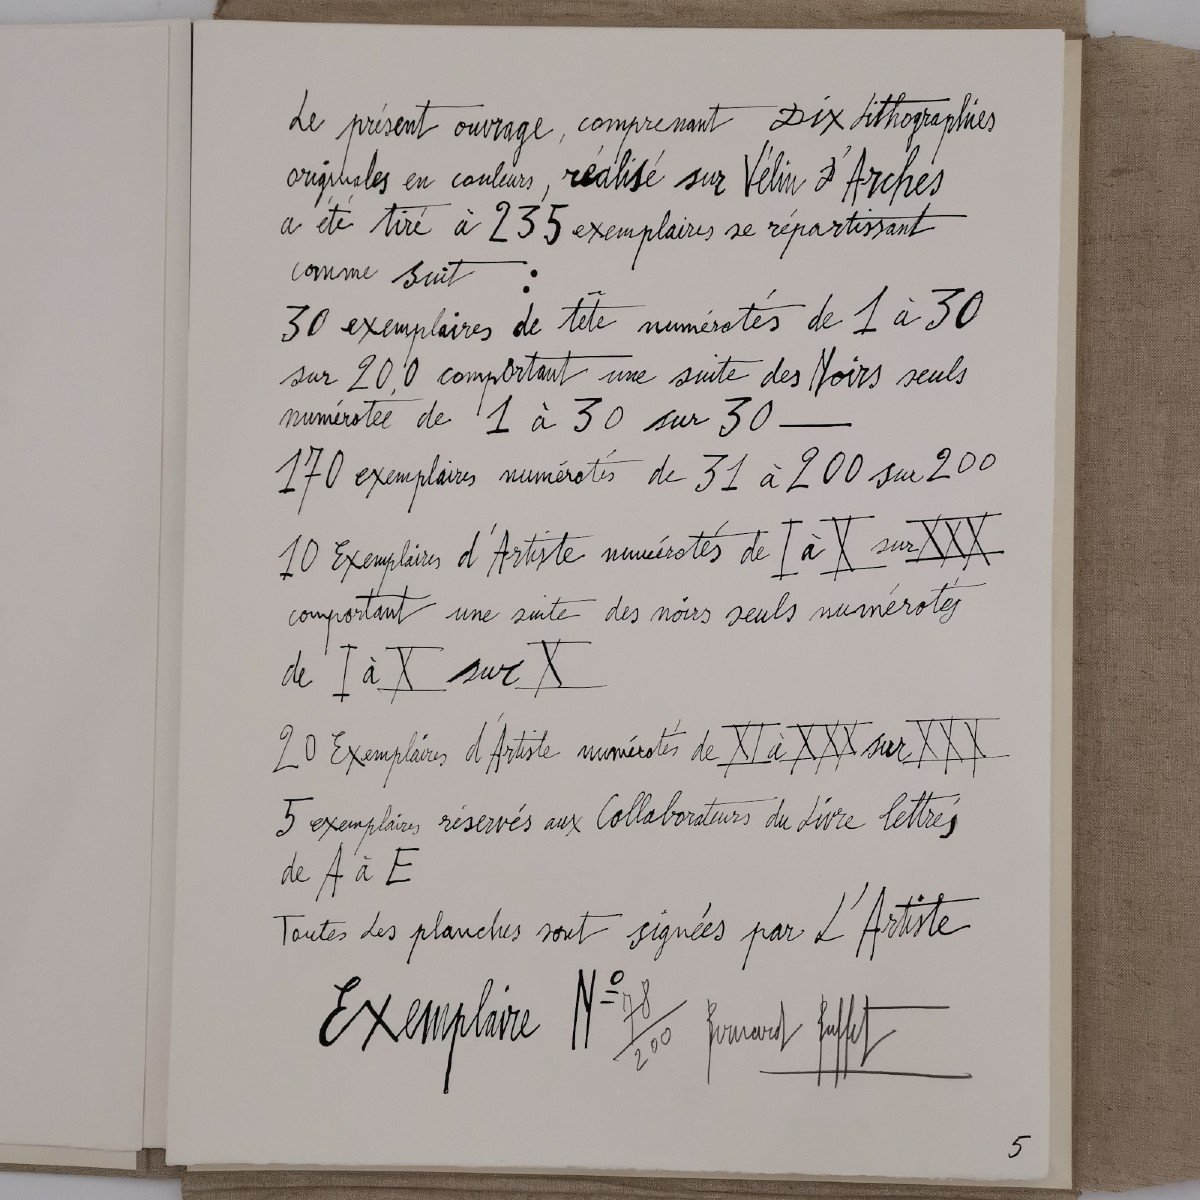 Le présent ouvrage, comprenant Dix Lithographies
originales en couleurs, réalisé sur Vélin d'Arches
a été tiré à 235 exemplaires se répartissant
comme suit :
30 exemplaires de tête numérotés de 1 à 30
sur 200 comportant une suite des Noirs seuls
numérotée de 1 à 30 sur 30 —
170 exemplaires numérotés de 31 à 200 sur 200
10 Exemplaires d'Artiste numérotés de I à X sur XXX
comportant une suite des noirs seuls numérotés
de I à X sur X
20 Exemplaires d'Artiste numérotés de XI à XXX sur XXX
5 exemplaires réservés aux Collaborateurs du Livre lettrés
de A à E
Toutes Les planches sont signées par L'Artiste
Exemplaire Nº 78/200 Bernard Buffet
5